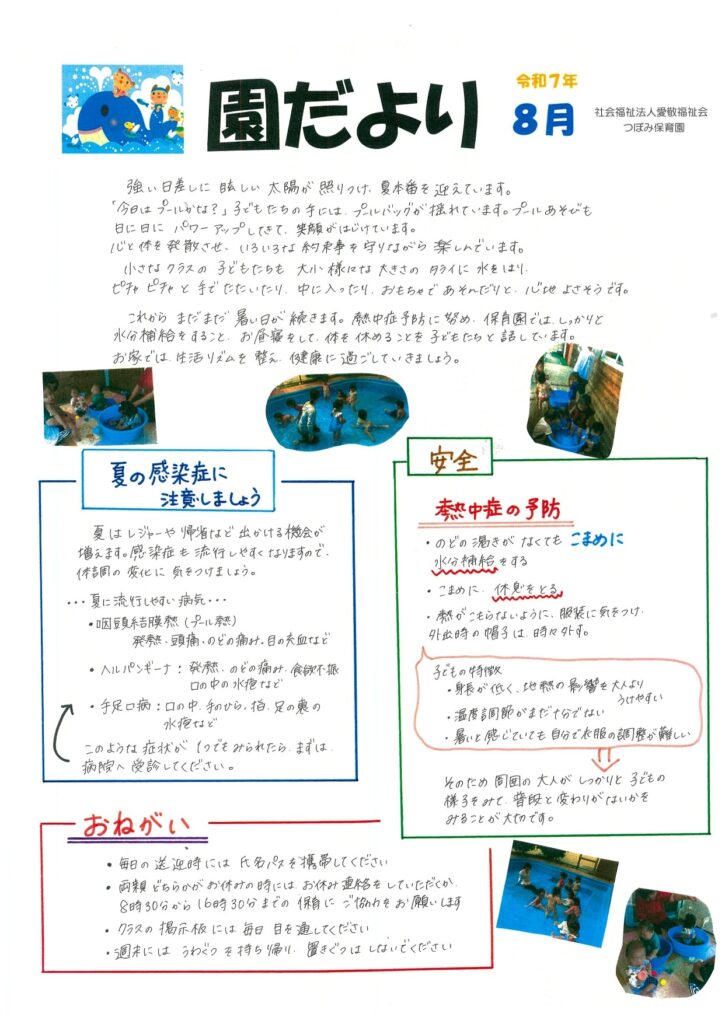 園だより
令和7年
8月
社会福祉法人愛敬福祉会
つぼみ保育園
強い日差しに 眩しい 太陽が 照りつけ、夏本番を 迎えています。
「今日は プールかな？」子どもたちの 手には、プールバッグが 揺れています。プールあそびも
日に日に パワーアップしてきて、笑顔がはじけています。
心と体を発散させ、いろいろな約束事を守りながら 楽しんでいます。
小さなクラスの 子どもたちも 大小様々な 大きさの タライに 水をはり、
ピチャ ピチャ と 手で たたいたり、中に入ったり、おもちゃで あそんだりと、心地 よさそうです。
これから まだまだ 暑い日が 続きます。熱中症予防に 努め、保育園では、しっかりと
水分補給をすること、お昼寝をして、体を 休めることを 子どもたちと 話しています。
お家では、生活リズムを 整え、健康に 過ごしていきましょう。
夏の感染症に
注意しましょう
夏は レジャーや 帰省など 出かける機会が
増えます。感染症も 流行しやすくなりますので、
体調の 変化に 気をつけましょう。
・・・夏に流行しやすい 病気・・・
・咽頭結膜熱（プール熱）
発熱、頭痛、のどの痛み、目の充血など
・ヘルパンギーナ：発熱、のどの痛み、食欲不振
口の中の 水疱など
・手足口病：口の中、手のひら、指、足の裏の
水疱など
このような 症状が 1つでもみられたら、まずは、
病院へ 受診してください。
安全
熱中症の予防
・のどの 渇きが なくても こまめに
水分補給をする
・こまめに、休息をとる
・熱がこもらないように、服装に気をつけ、
外出時の帽子は、時々外す。
子どもの特徴
・身長が低く、地熱の 影響を大人より
うけやすい
・温度調節がまだ十分でない
・暑いと感じていても自分で衣服の調整が難しい
そのため 周囲の 大人が しっかりと 子どもの
様子をみて、普段と 変わりがないかを
みることが 大切です。
おねがい
・毎日の 送迎時には 氏名パスを 携帯してください
・両親 どちらかが お休みの時には、お休み連絡をしていただくか、
8時30分から 16時30分までの 保育に ご協力を お願いします
・クラスの 掲示板 には 毎日 目を 通してください
・週末には うわぐつを 持ち帰り、置きぐつは しないでください